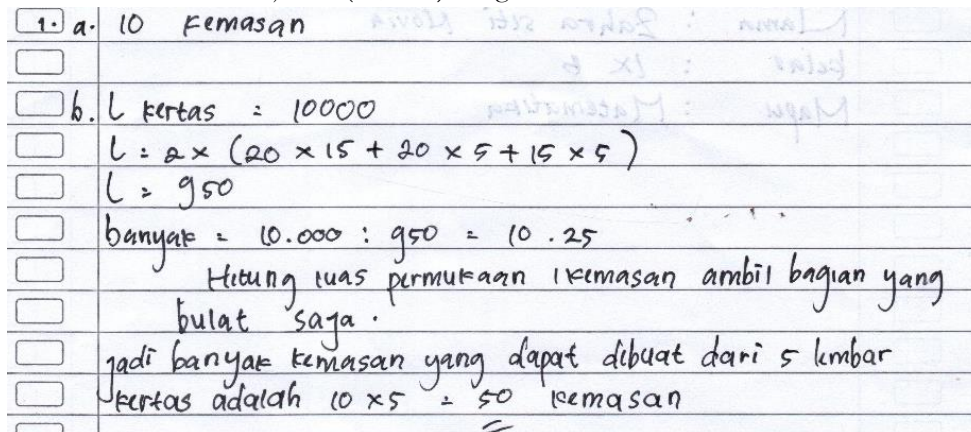 1. a. 10 kemasan
b. L kertas = 10000
L = 2 × (20 × 15 + 20 × 5 + 15 × 5)
L = 950
banyak = 10.000 : 950 = 10.25
Hitung luas permukaan 1 kemasan ambil bagian yang
bulat saja.
jadi banyak kemasan yang dapat dibuat dari 5 lmbar
kertas adalah 10 × 5 = 50 kemasan